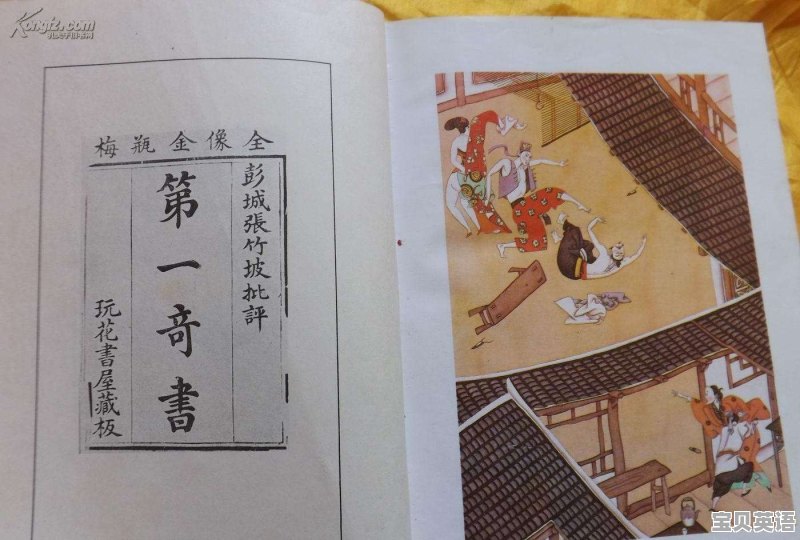 Kongfz.com
孔夫子旧书网
全像金瓶梅
彭城張竹坡批評
第一奇書
玩花書屋藏板
宝贝英语